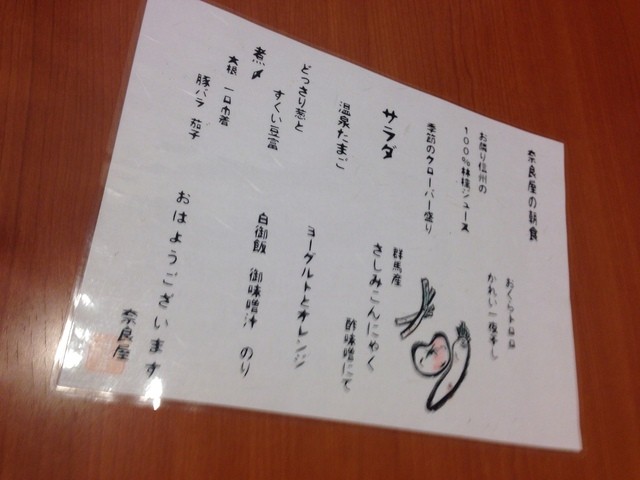 奈良屋の朝食
お隣り信州の
100%林檎ジュース
季節のクローバー盛り
サラダ
温泉たまご
どっさり葱と
すくい豆富
煮〆
大根 一口巾着
豚バラ 茄子
おくらトロロ
かれい一夜干し
群馬産
さしみこんにゃく
酢味噌にて
ヨーグルトとオレンジ
白御飯 御味噌汁 のり
おはようございます
奈良屋